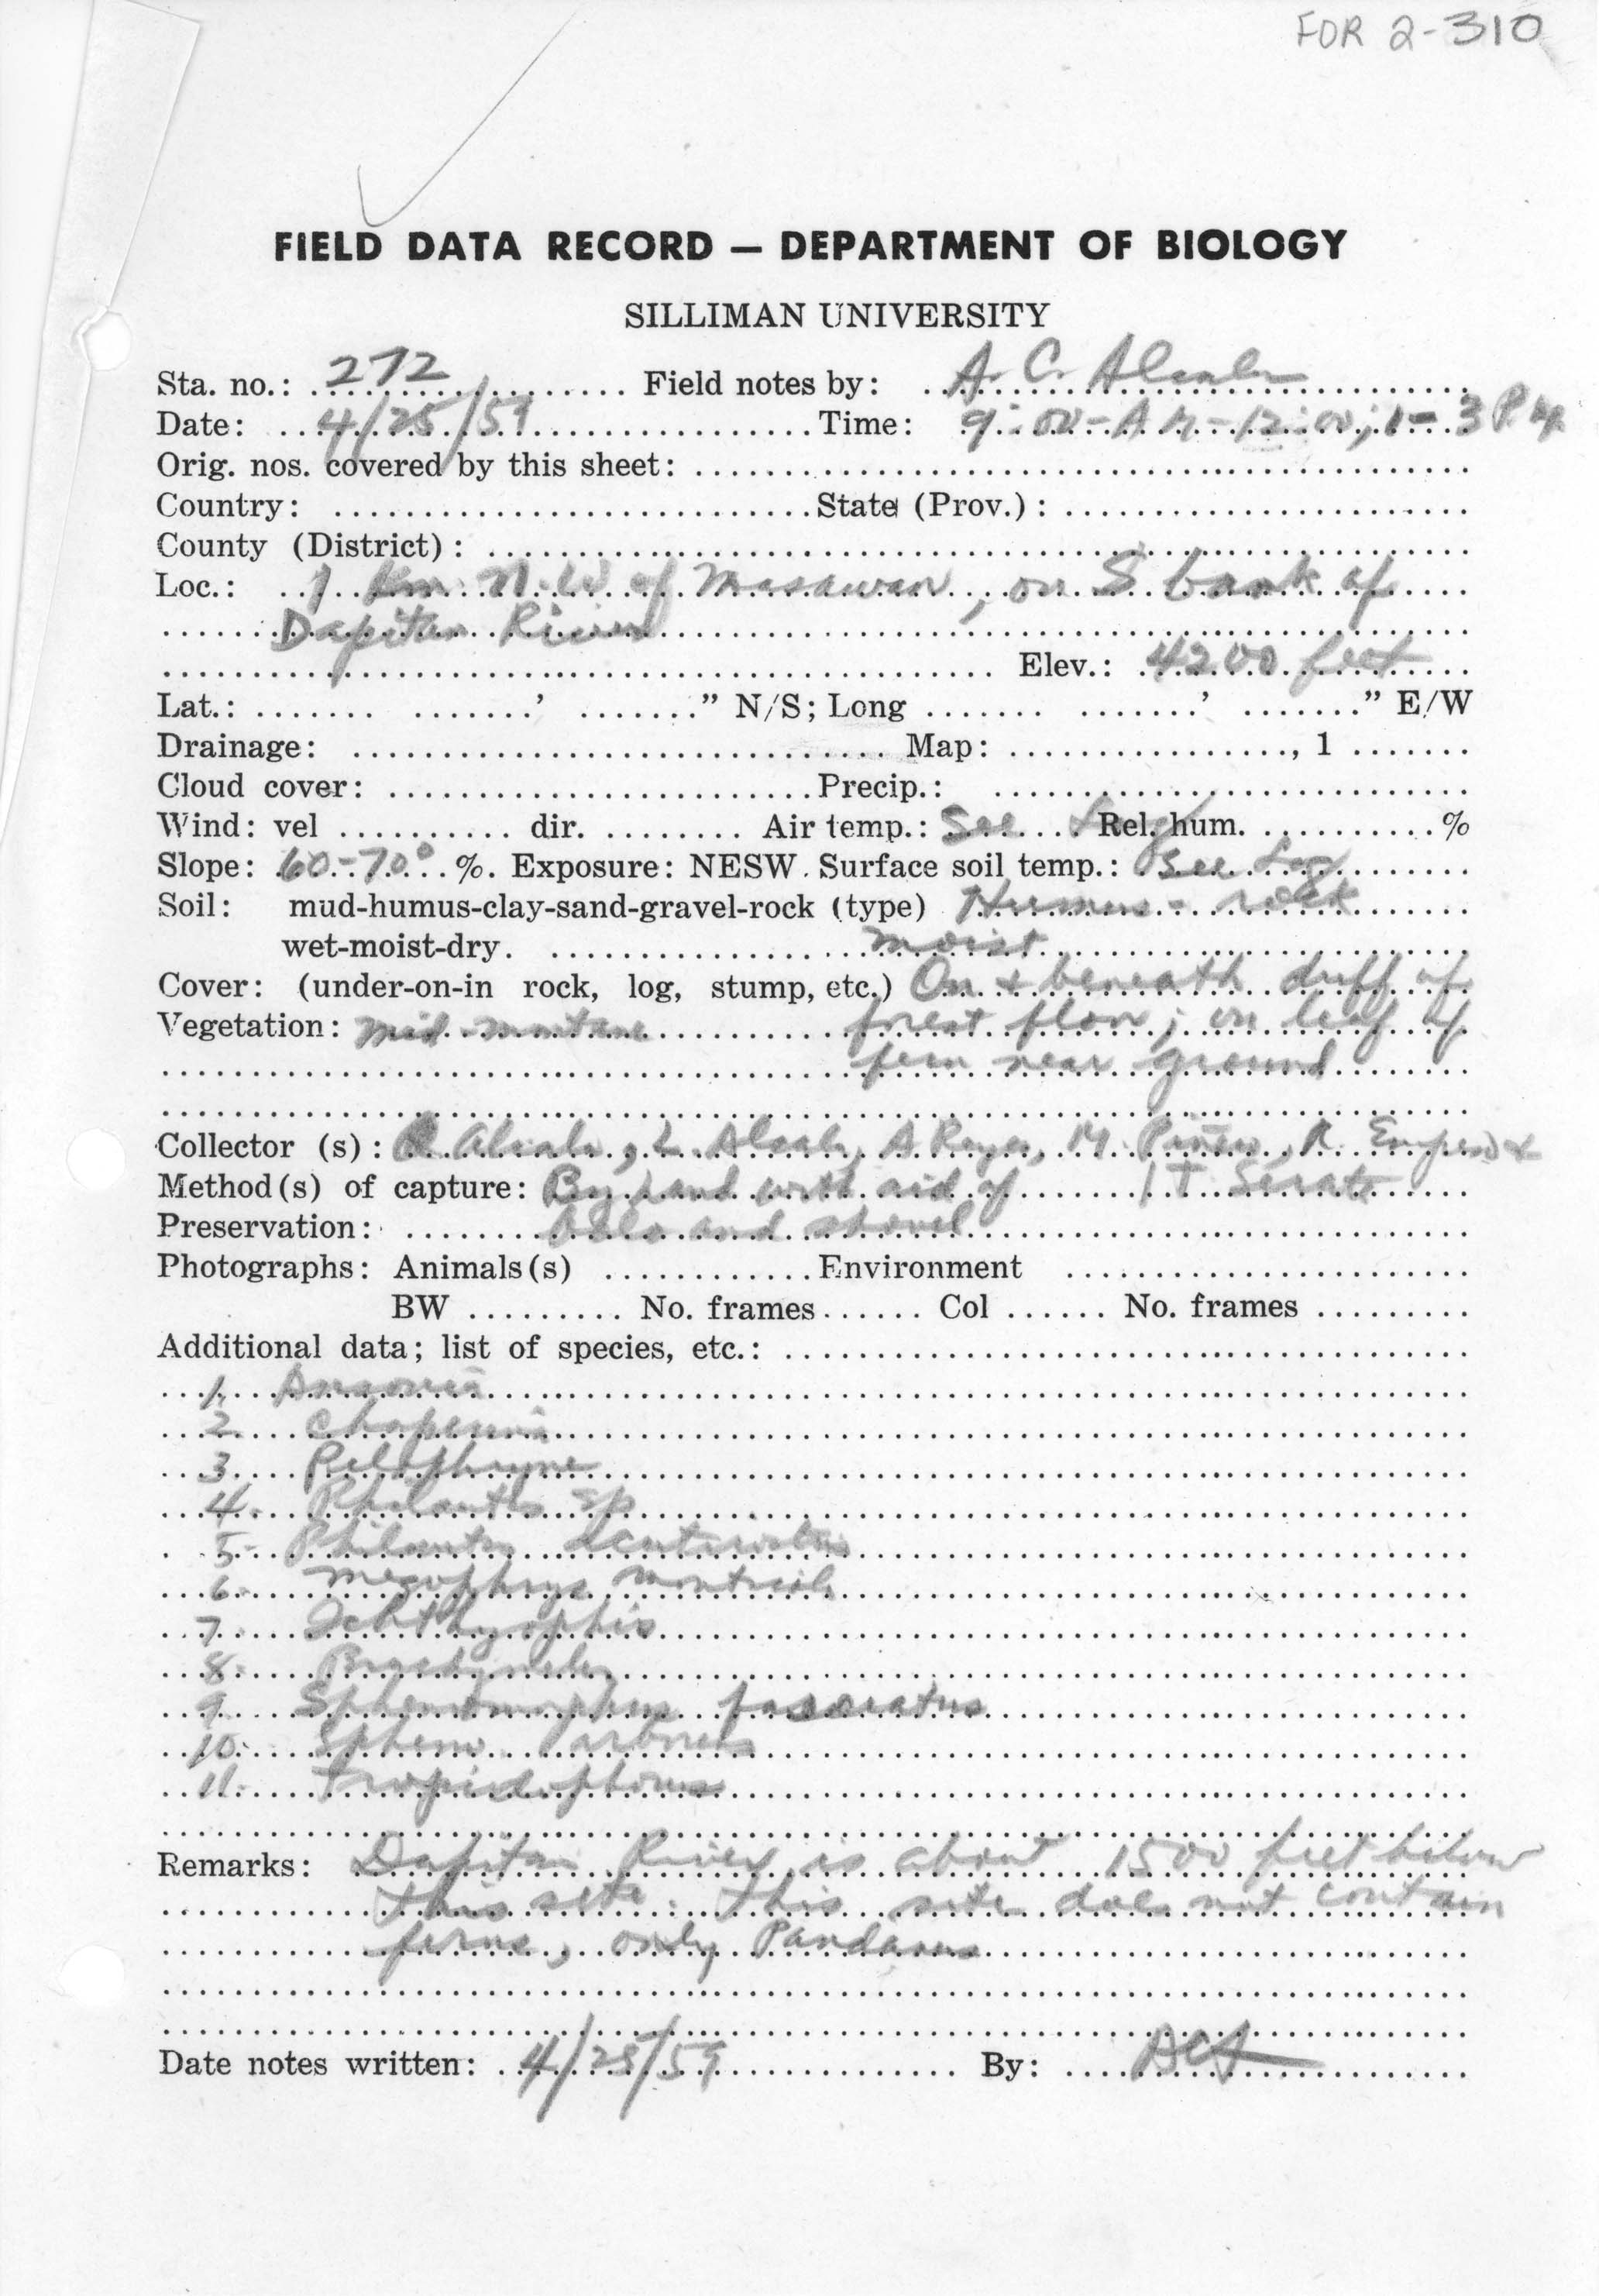 FOR 2-310
FIELD DATA RECORD — DEPARTMENT OF BIOLOGY
SILLIMAN UNIVERSITY
Sta. no.: 272 Field notes by: A. C. Alcala
Date: 4/25/59 Time: 9:00-AM-12:00; 1-3 P.M.
Orig. nos. covered by this sheet:
Country: State (Prov.):
County (District):
Loc.: 1 Km N.W of Masawan, on S bank of
Dapitan River
Elev.: 4200 feet
Lat.: ' " N/S; Long ' " E/W
Drainage: Map: , 1
Cloud cover: Precip.:
Wind: vel dir. Air temp.: See Log Rel. hum. %
Slope: 60-70° %. Exposure: NESW. Surface soil temp.: See Log
Soil: mud-humus-clay-sand-gravel-rock (type) Humus - rock
wet-moist-dry. moist
Cover: (under-on-in rock, log, stump, etc.) On & beneath duff of
Vegetation: mid-montane forest floor; on leaf of
fern near ground
Collector (s): Alcala, L. Alcala, A Reyes, M. R. &
Method(s) of capture: By hand with aid of T. Serate
Preservation: bolo and shovel
Photographs: Animals(s) Environment
BW No. frames Col No. frames
Additional data; list of species, etc.:
1. Ansonia
2. Chaperina
3. Pelophryne
4. Philautus sp
5- Philautus acutirostris
6. Megophrys monticola
7. Ichthyophis
8. Brachymeles
9. Sphenomorphus fasciatus
10. Spheno. arborens
11. Tropidophorus
Remarks: Dapitan River is about 1500 feet below
this site. This site does not contain
ferns, only Pandanus
Date notes written: 4/25/59 By: ACA